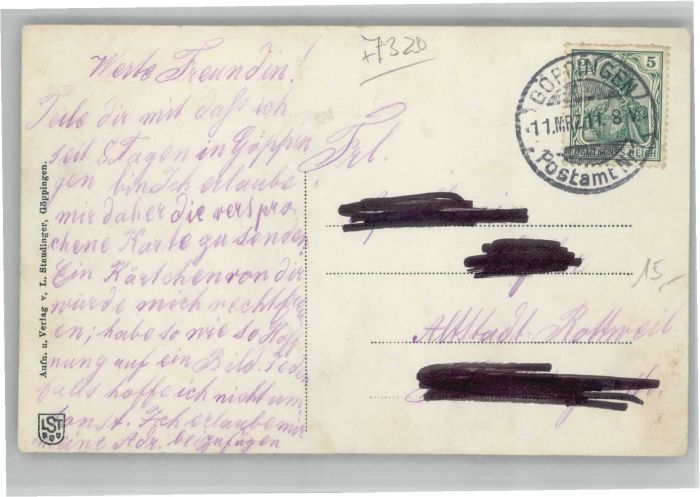 +7320
Werte Freundin!
Teile dir mit, daſs ich
seit 8 Tagen in Göppin
gen bin Ich erlaube
mir daher die verspro-
chene Karte zu senden
Ein Kärtchen von dir
würde mich recht freu
en; habe so wie so Hoff
nung auf ein Bild. Jeden
falls hoffe ich nicht um
sonst. Ich erlaube mir
meine Adr. beizufügen
Aufn. u. Verlag v. L. Staudinger, Göppingen.
LST
GÖPPINGEN
11.MRZ.11. 8 V.
Postamt
5 5
DEUTSCHES REICH
Frl.
15,-
Altstadt-Rottweil